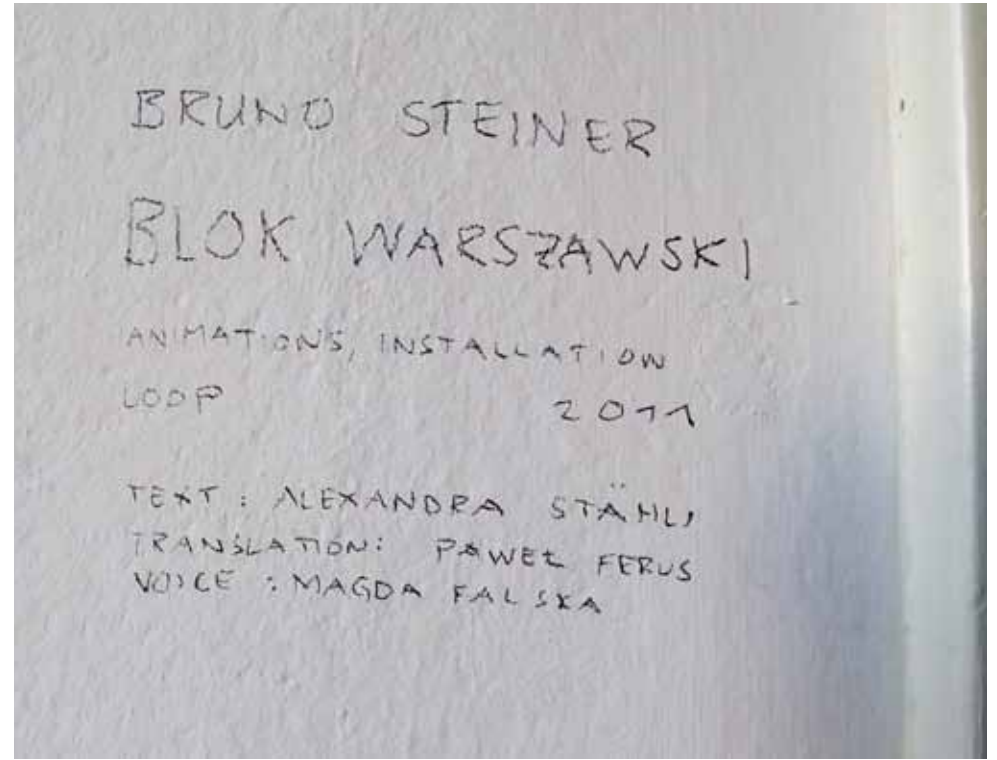 BRUNO STEINER
BLOK WARSZAWSKI
ANIMATIONS, INSTALLATION
LOOP 2011
TEXT: ALEXANDRA STÄHLI
TRANSLATION: PAWEŁ FERUS
VOICE: MAGDA FALSKA